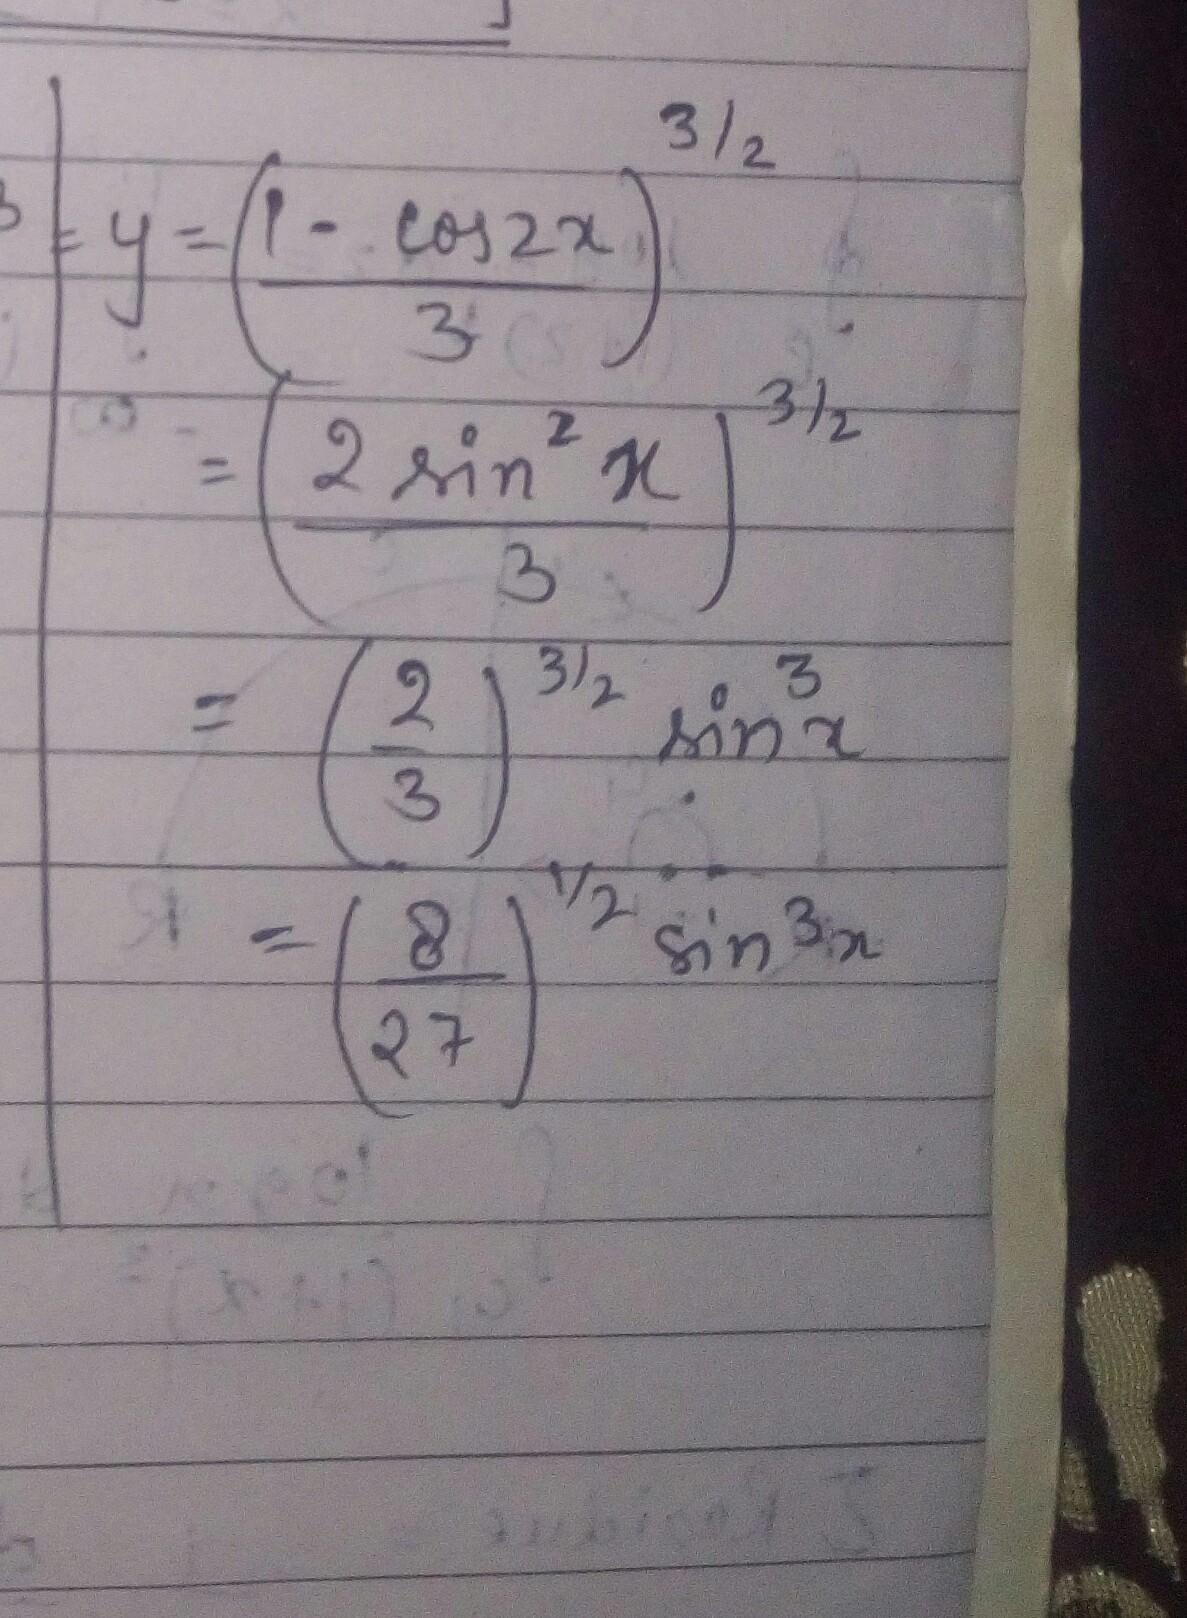 = y = (1 - cos2x / 3)^3/2
= (2 sin² x / 3)^3/2
= (2/3)^3/2 sin³x
= (8/27)^1/2 sin³x